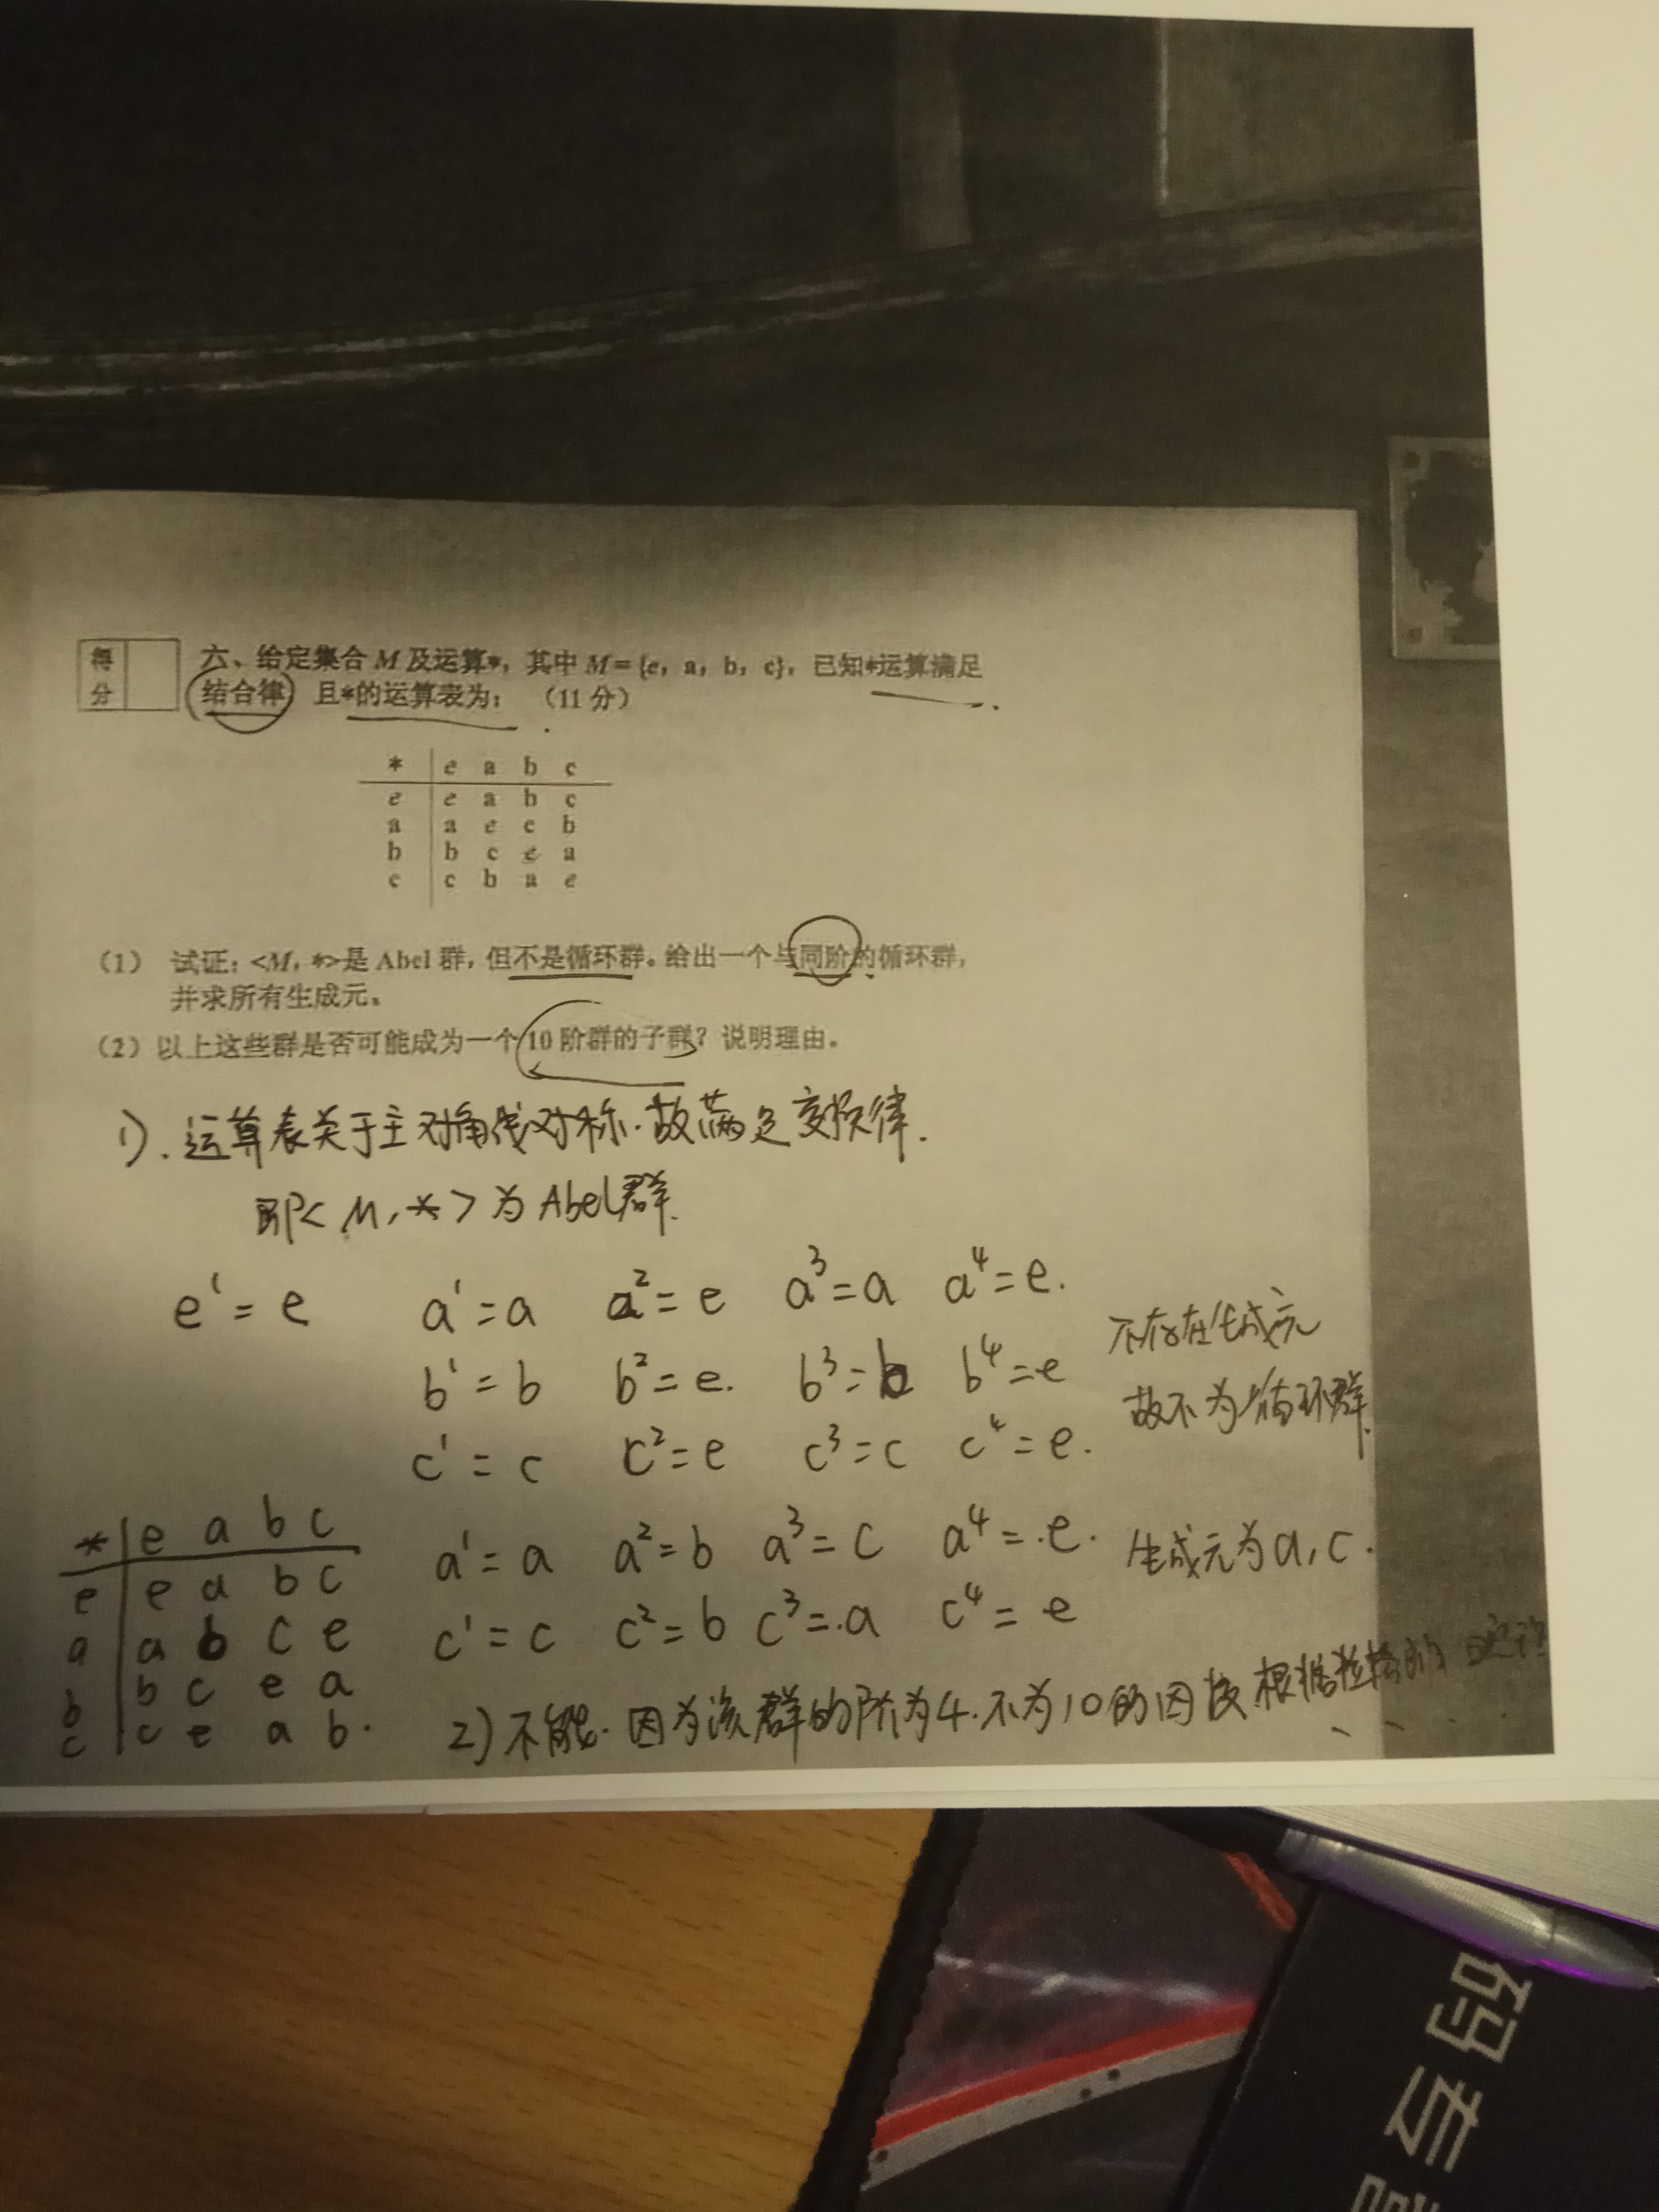 得分
六、给定集合 M 及运算*，其中 M={e，a，b，c}，已知*运算满足
结合律，且*的运算表为：（11 分）
* e a b c
e e a b c
a a e c b
b b c e a
c c b a e
（1） 试证：<M, *>是 Abel 群，但不是循环群。给出一个与同阶的循环群，
并求所有生成元。
（2）以上这些群是否可能成为一个 10 阶群的子群？说明理由。
1). 运算表关于主对角线对称. 故满足交换律.
即<M,*>为Abel群.
e¹=e a¹=a a²=e a³=a a⁴=e.
b¹=b b²=e. b³=b b⁴=e 不存在生成元
c¹=c c²=e c³=c c⁴=e. 故不为循环群.
* e a b c
e e a b c
a a b c e
b b c e a
c c e a b.
a¹=a a²=b a³=c a⁴=.e. 生成元为a,c.
c¹=c c²=b c³=.a c⁴=e
2) 不能. 因为该群的阶为4.不为10的因数.根据拉格